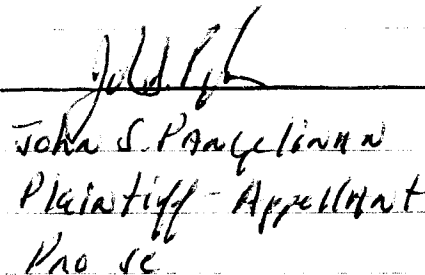 John S. Pangelinan
Plaintiff - Appellant
Pro se